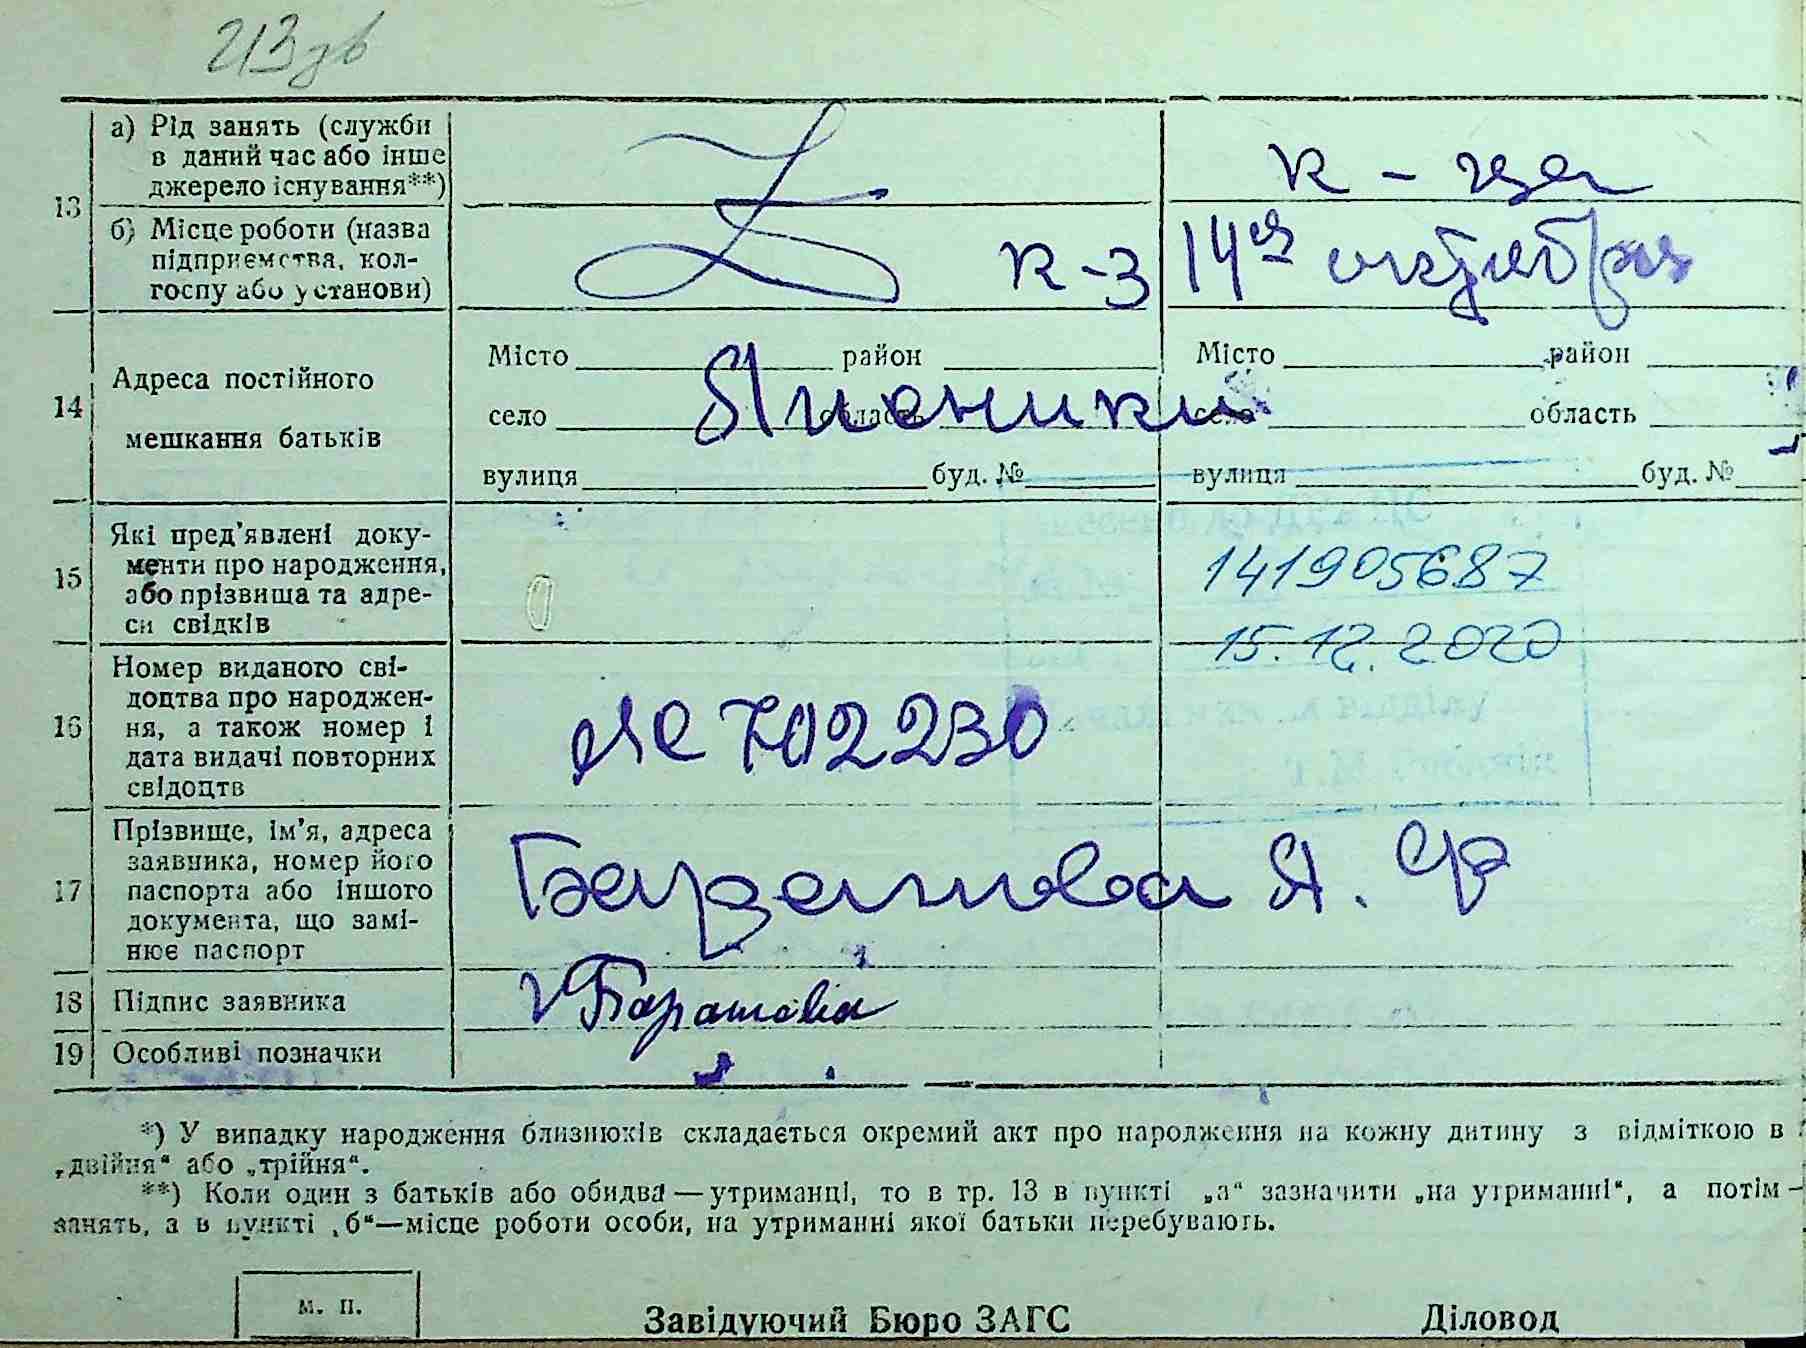 213 дв
а) Рід занять (служби к - ца
в даний час або інше
джерело існування**)
13
б) Місце роботи (назва к-з 14ая октября
підприємства, кол-
госпу або установи)
Місто район Місто район
Адреса постійного
14 село область село область
мешкання батьків
вулиця буд. № вулиця буд. №
Які пред'явлені доку-
15 менти про народження, 141905687
або прізвища та адре-
си свідків 15.12.2020
Номер виданого сві-
доцтва про народжен-
16 ня, а також номер і ЯС 702230
дата видачі повторних
свідоцтв
Прізвище, ім'я, адреса
заявника, номер його
17 паспорта або іншого Баранова Я. Ф
документа, що замі-
нює паспорт
18 Підпис заявника Баранова
19 Особливі позначки
*) У випадку народження близнюків складається окремий акт про народження на кожну дитину з відміткою в
„двійня“ або „трійня“.
**) Коли один з батьків або обидва — утриманці, то в гр. 13 в пункті „а“ зазначити „на утриманні“, а потім —
занять, а в пункті „б“ — місце роботи особи, на утриманні якої батьки перебувають.
м. п.
Завідуючий Бюро ЗАГС Діловод